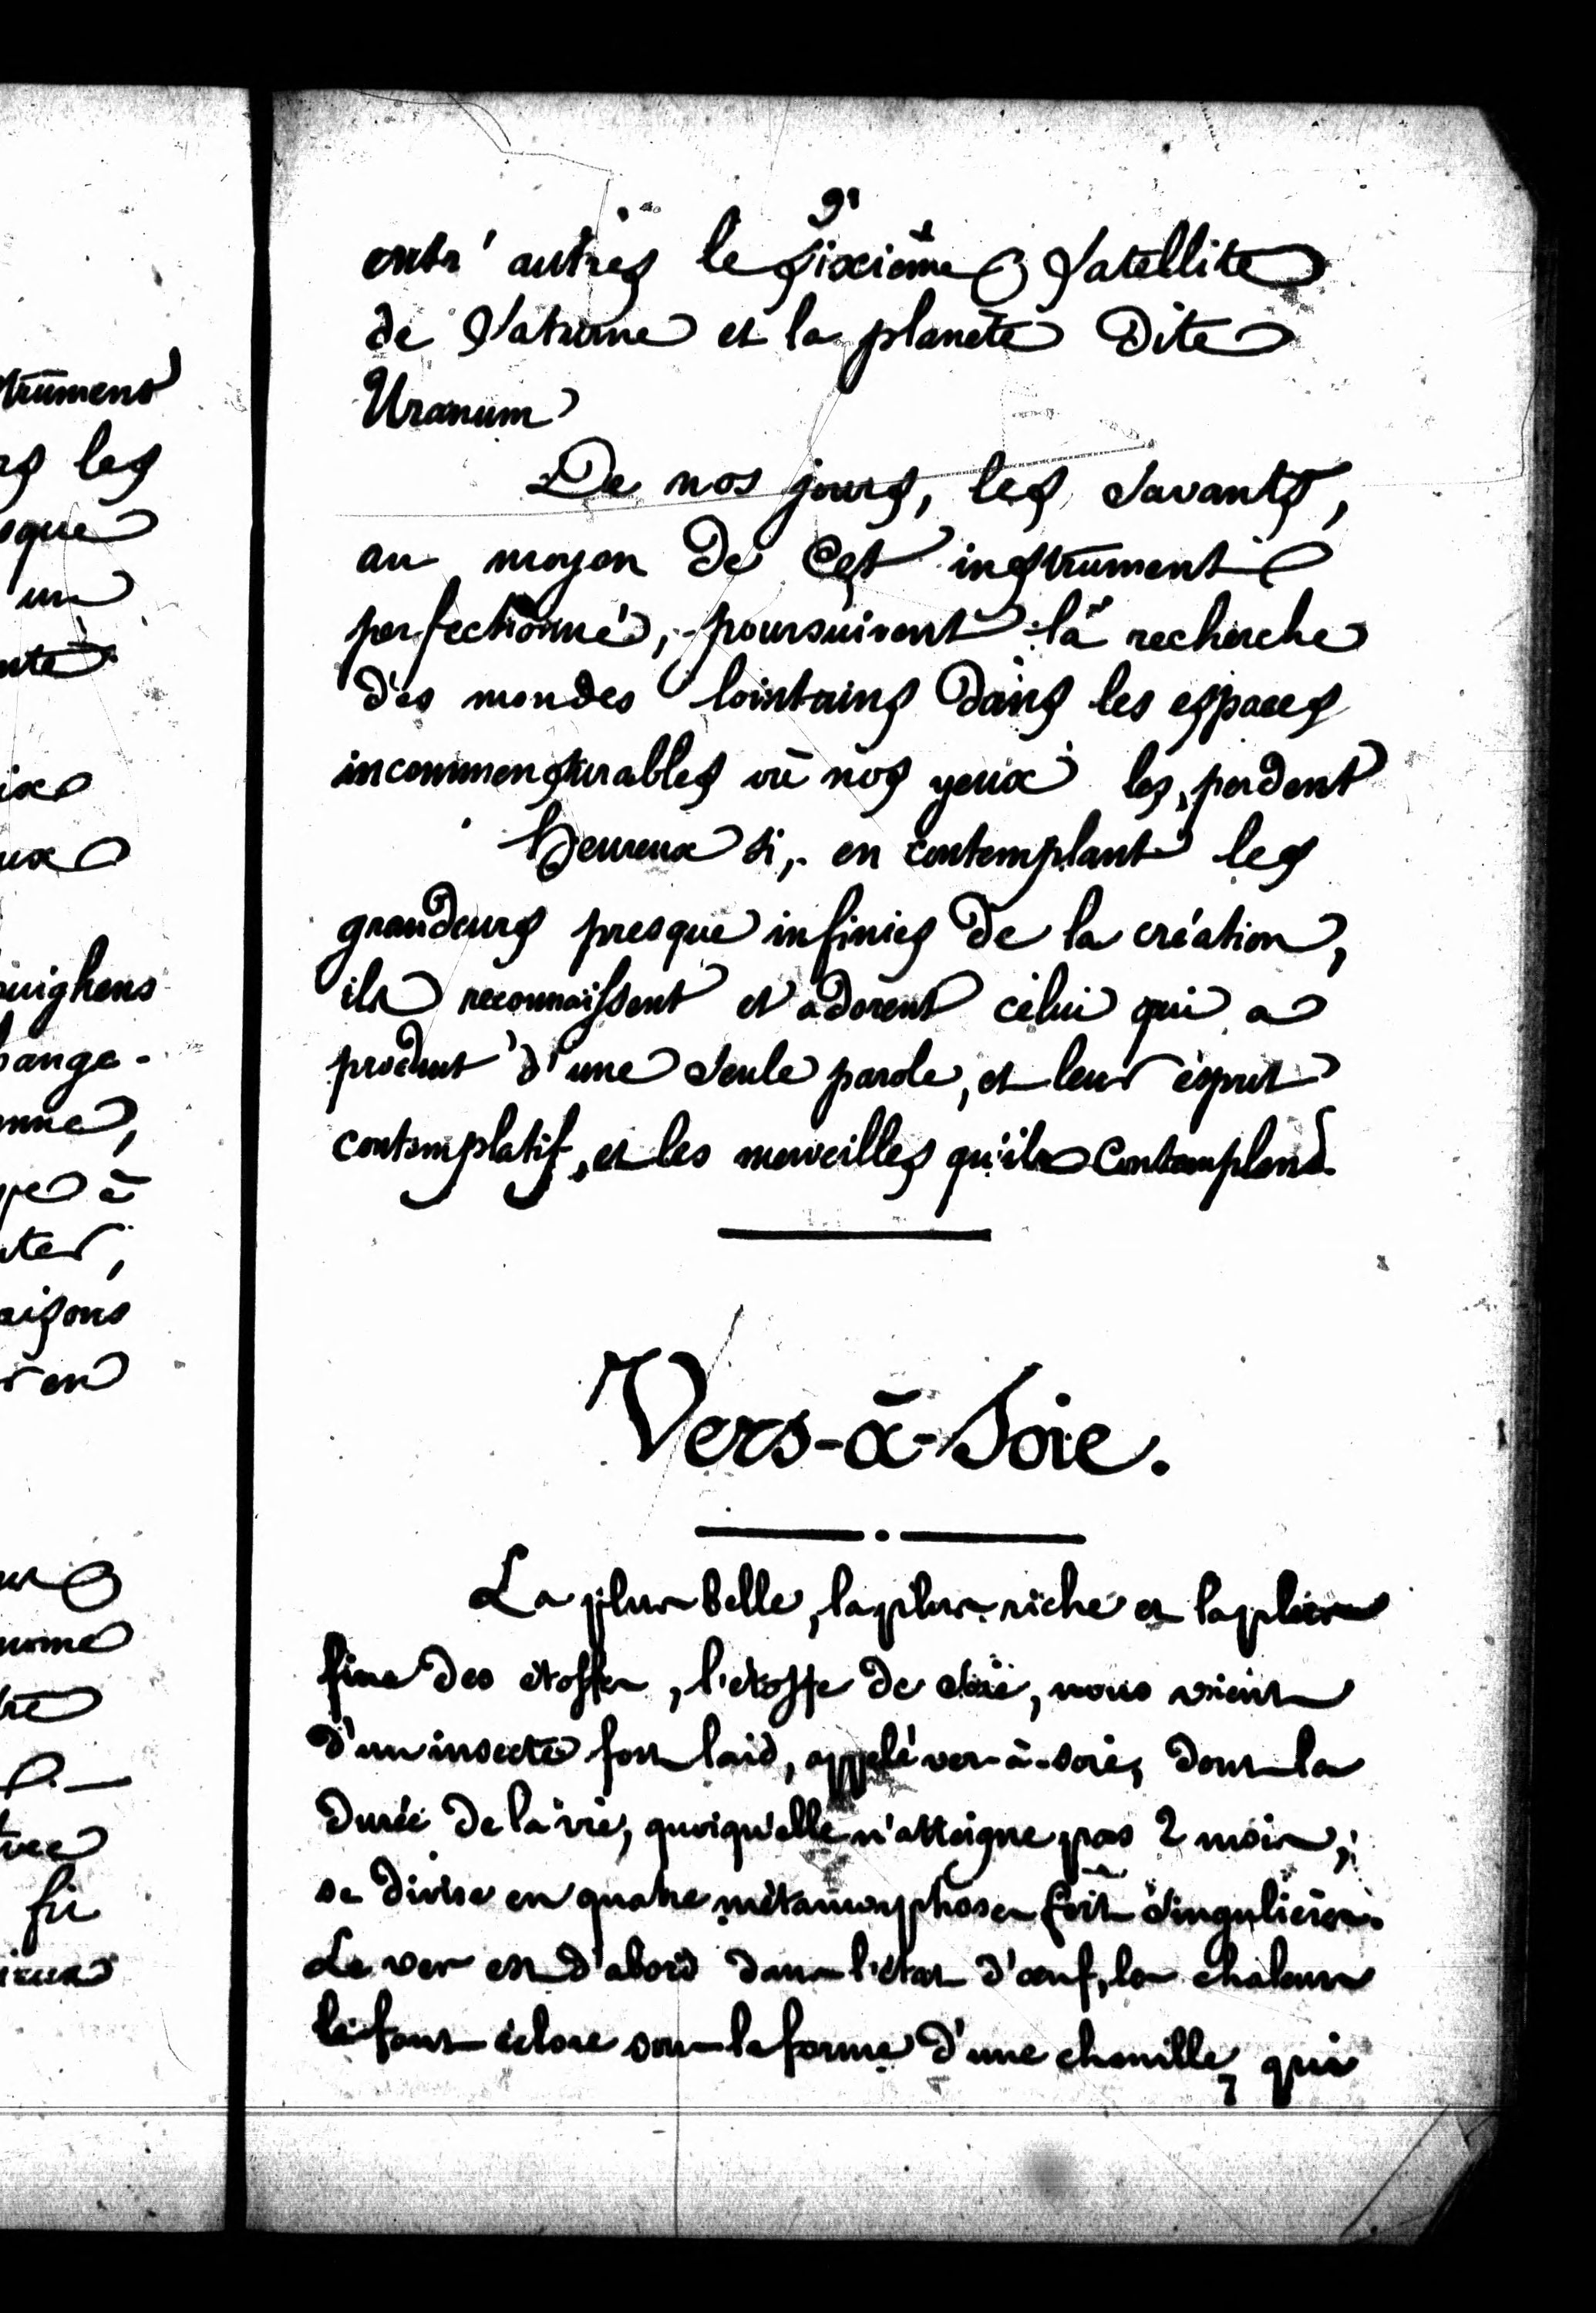 trument
les
sque
un
uighens
à
fit
9
entr' autres le sixième Satellite
de Saturne et la planète dite
Uranum
De nos jours, les Savants,
au moyen de cet instrument
perfectionné, poursuivent la recherche
des mondes lointains dans les espaces
incommensurables où nos yeux les perdent
Heureux si, en contemplant les
grandeurs presque infinies de la création,
ils reconnaissent et adorent celui qui a
produit d'une Seule parole, et leur esprit
contemplatif, et les merveilles qu'ils contemplent.
Vers-à-Soie.
La plus belle, la plus riche et la plus
fine des étoffes, l'étoffe de Soie, nous vient
d'un insecte fort laid, appelé ver-à-soie, dont la
durée de la vie, quoiqu'elle n'atteigne pas 2 mois,
se divise en quatre métamorphoses fort Singulières.
Le ver est d'abord dans l'état d'œuf, la chaleur
le fait éclore sous la forme d'une chenille, qui